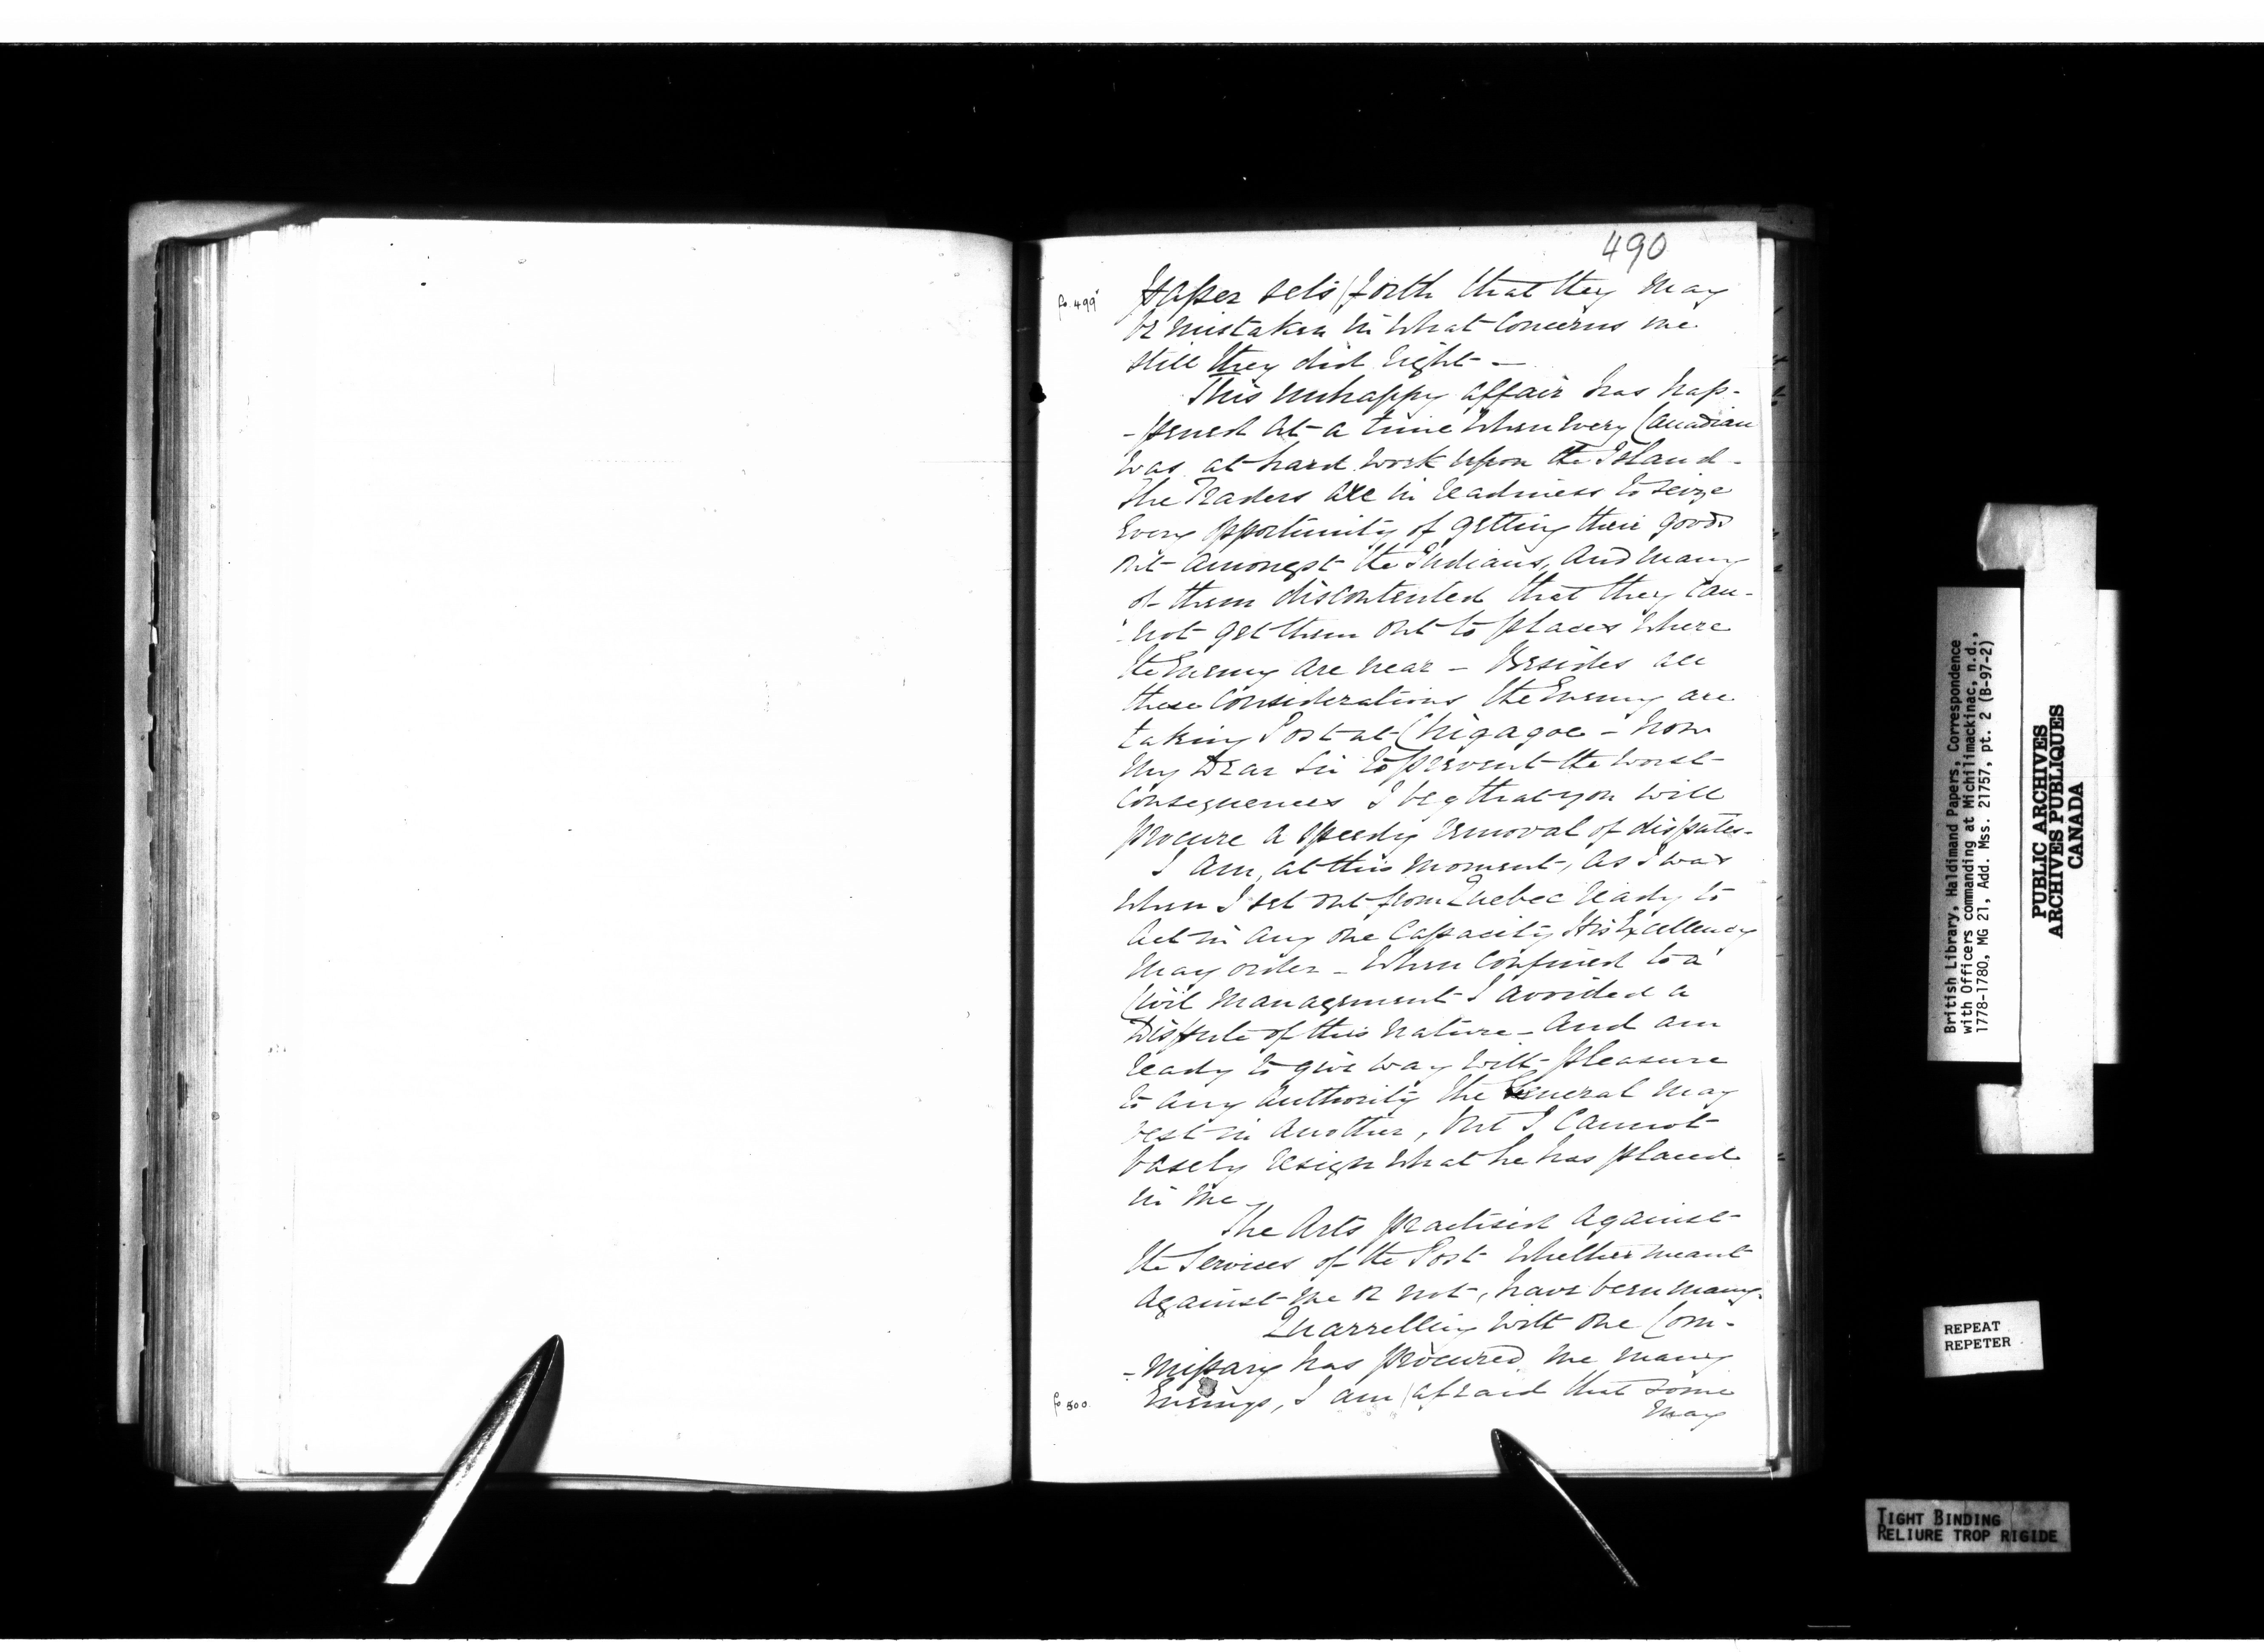 490
fo. 499
Paper sets / forth that they may
be mistaken in what concerns me
still they did right —
This unhappy affair has hap-
-pened at a time when every Canadian
was at hard work upon the Island -
the Traders are in readiness to seize
every opportunity of getting their goods
out amongst the Indians, and many
of them discontented that they can-
-not get them out to places where
the Enemy are near - Besides all
these considerations the Enemy are
taking Post at Chigagoe - now
my Dear Sir to prevent the worst
consequences I beg that you will
procure a speedy removal of disputes -
I am, at this moment, as I was
when I set out from Quebec ready to
act in any one Capacity His Excellency
may order - When confined to a
Civil management I avoided a
Dispute of this nature - and am
ready to give way with pleasure
to any authority the General may
vest in another, but I cannot
basely resign what he has placed
in me -
The Arts practised against
the Services of the Post whether meant
against me or not, have been many.
Quarrelling with one Com-
-missary has procured me many
Enemys, I am / afraid that some
fo 500.
may
British Library, Haldimand Papers, Correspondence
with Officers commanding at Michilimackinac, n.d.,
1778-1780, MG 21, Add. Mss. 21757, pt. 2 (B-97-2)
PUBLIC ARCHIVES
ARCHIVES PUBLIQUES
CANADA
REPEAT
REPETER
TIGHT BINDING
RELIURE TROP RIGIDE